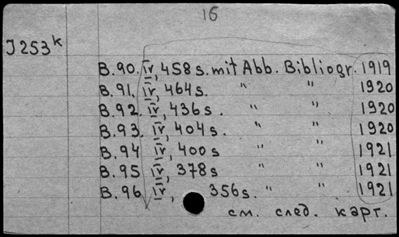 16
J253ᴷ
B.90. IV, 458s. mit Abb. Bibliogr. 1919
B.91. IV, 464s. " " 1920
B.92. IV, 436s. " " 1920
B.93. IV, 404s. " " 1920
B.94 IV, 400s " " 1921
B.95 IV, 378s " " 1921
B.96 IV, 356s. " " 1921
см. след. карт.